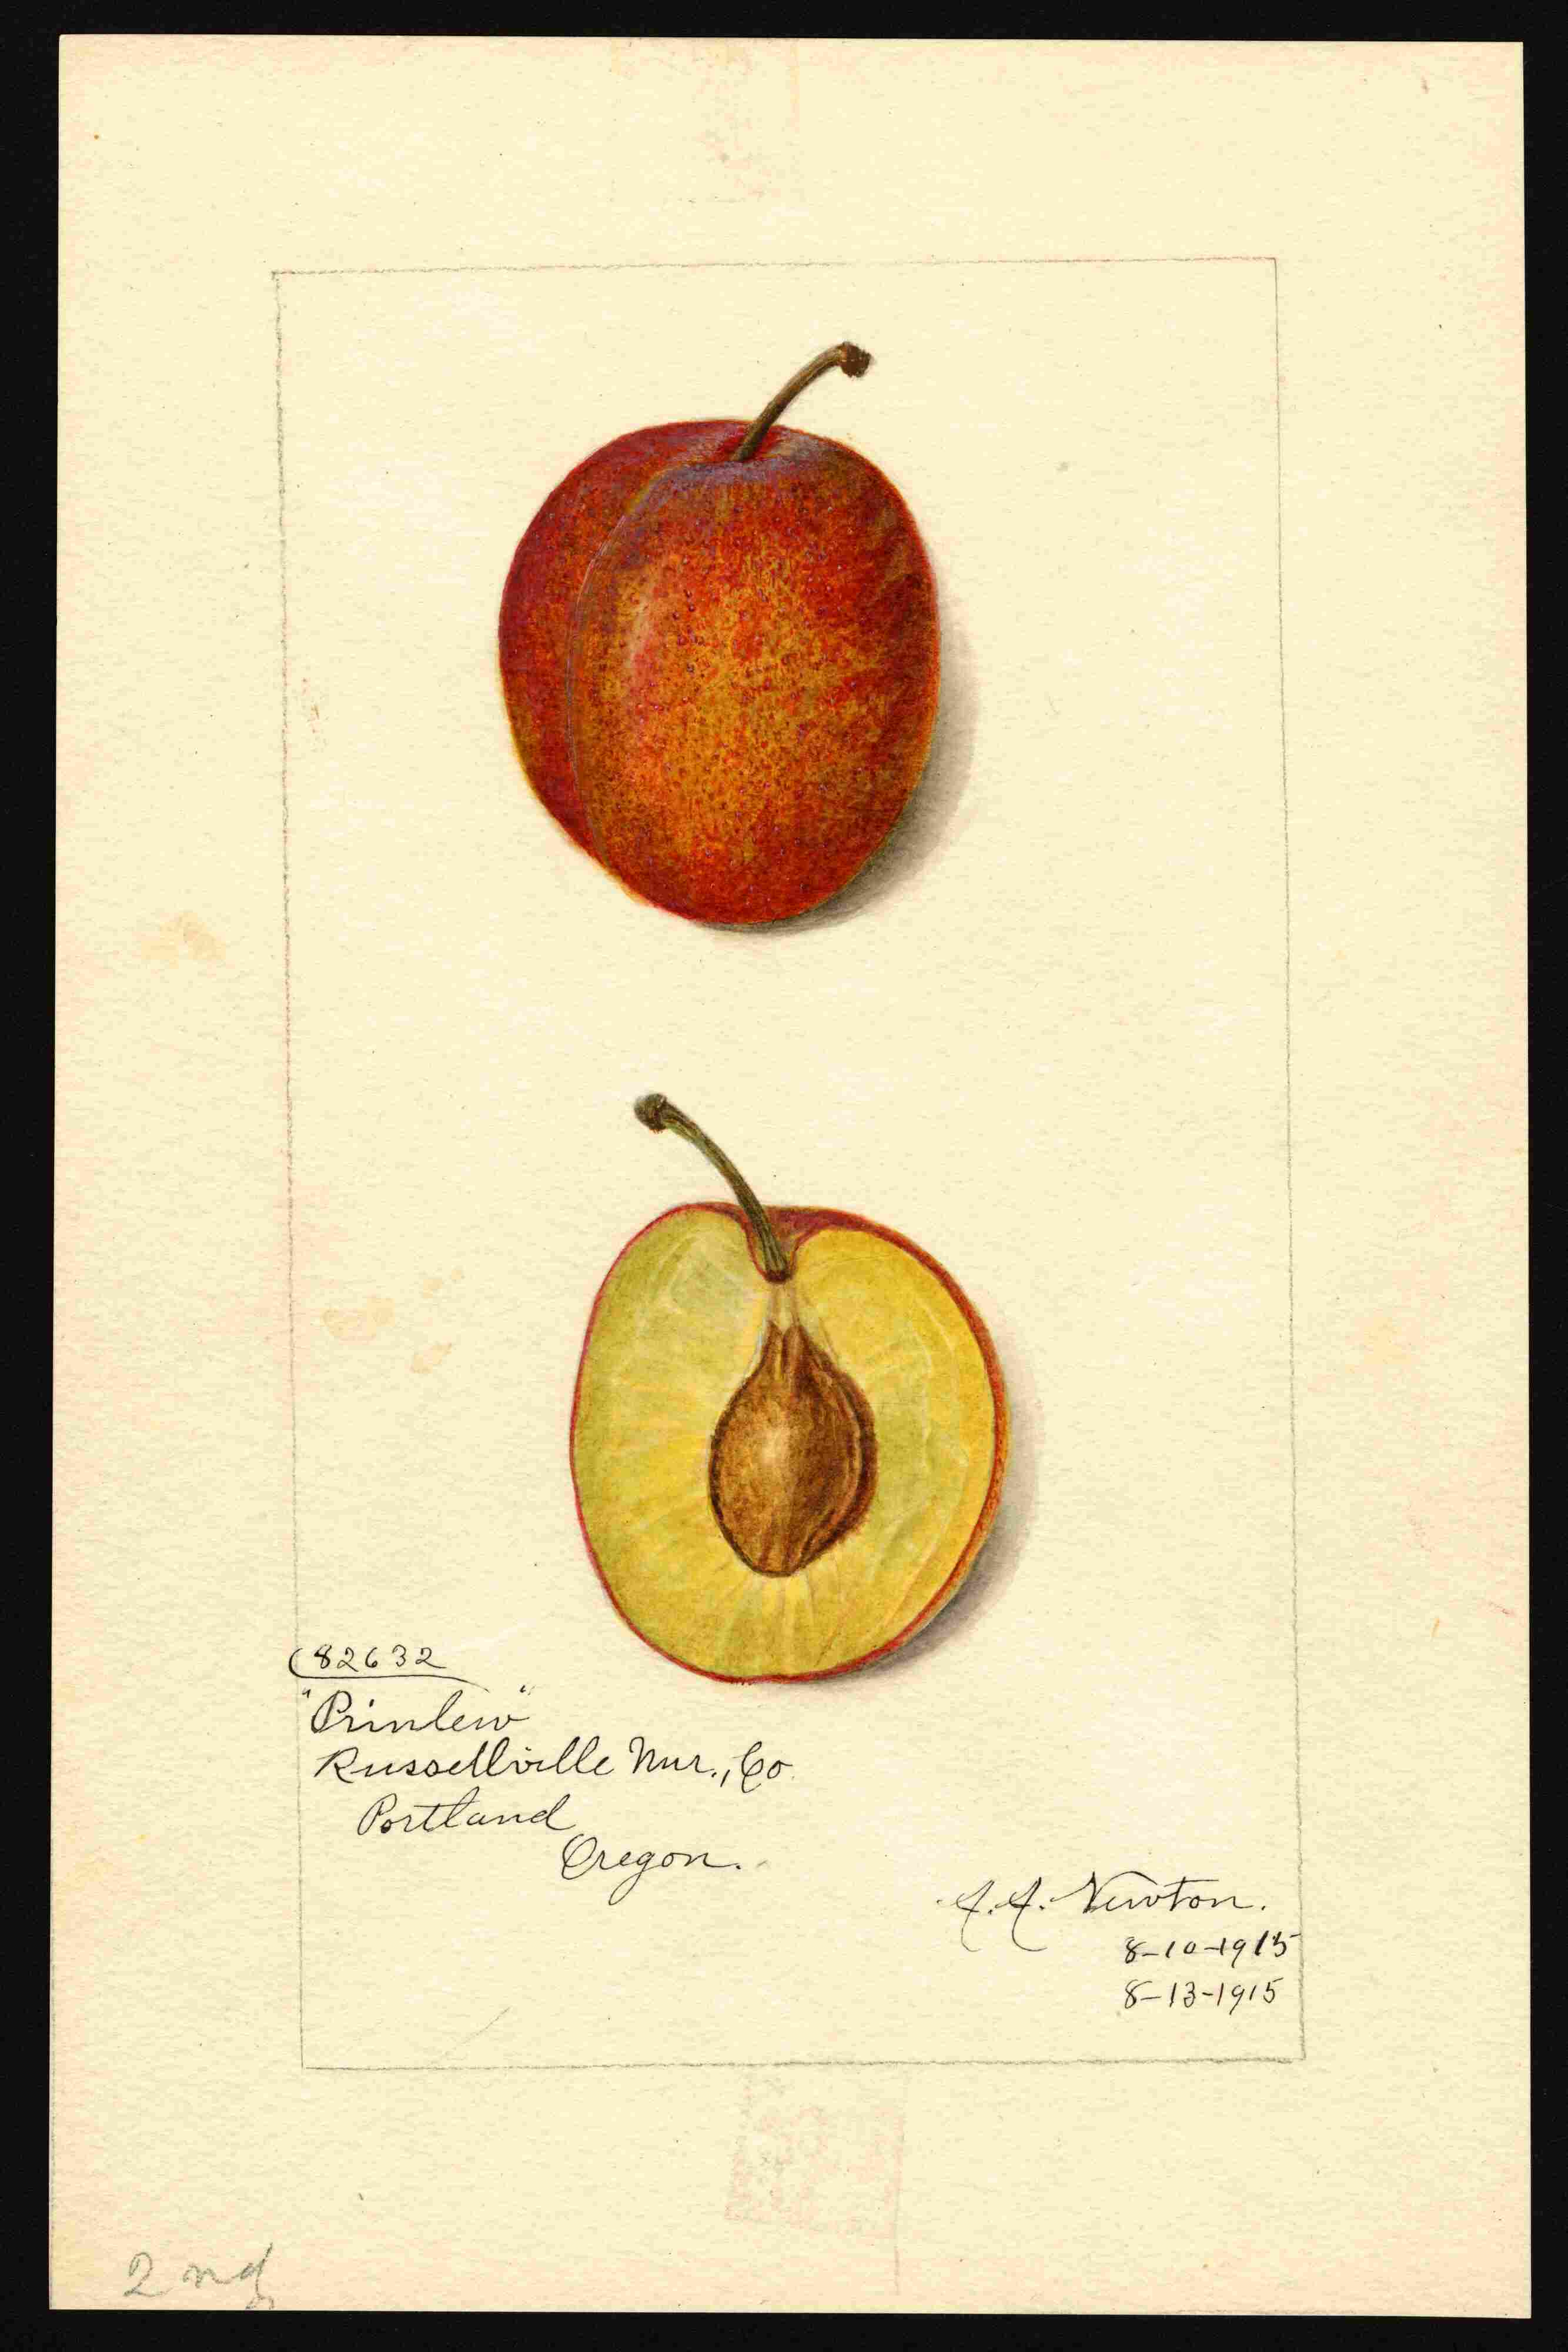 82632
"Prinlew"
Russellville Nur., Co.
Portland
Oregon.
A. A. Newton.
8-10-1915
8-13-1915
2nd